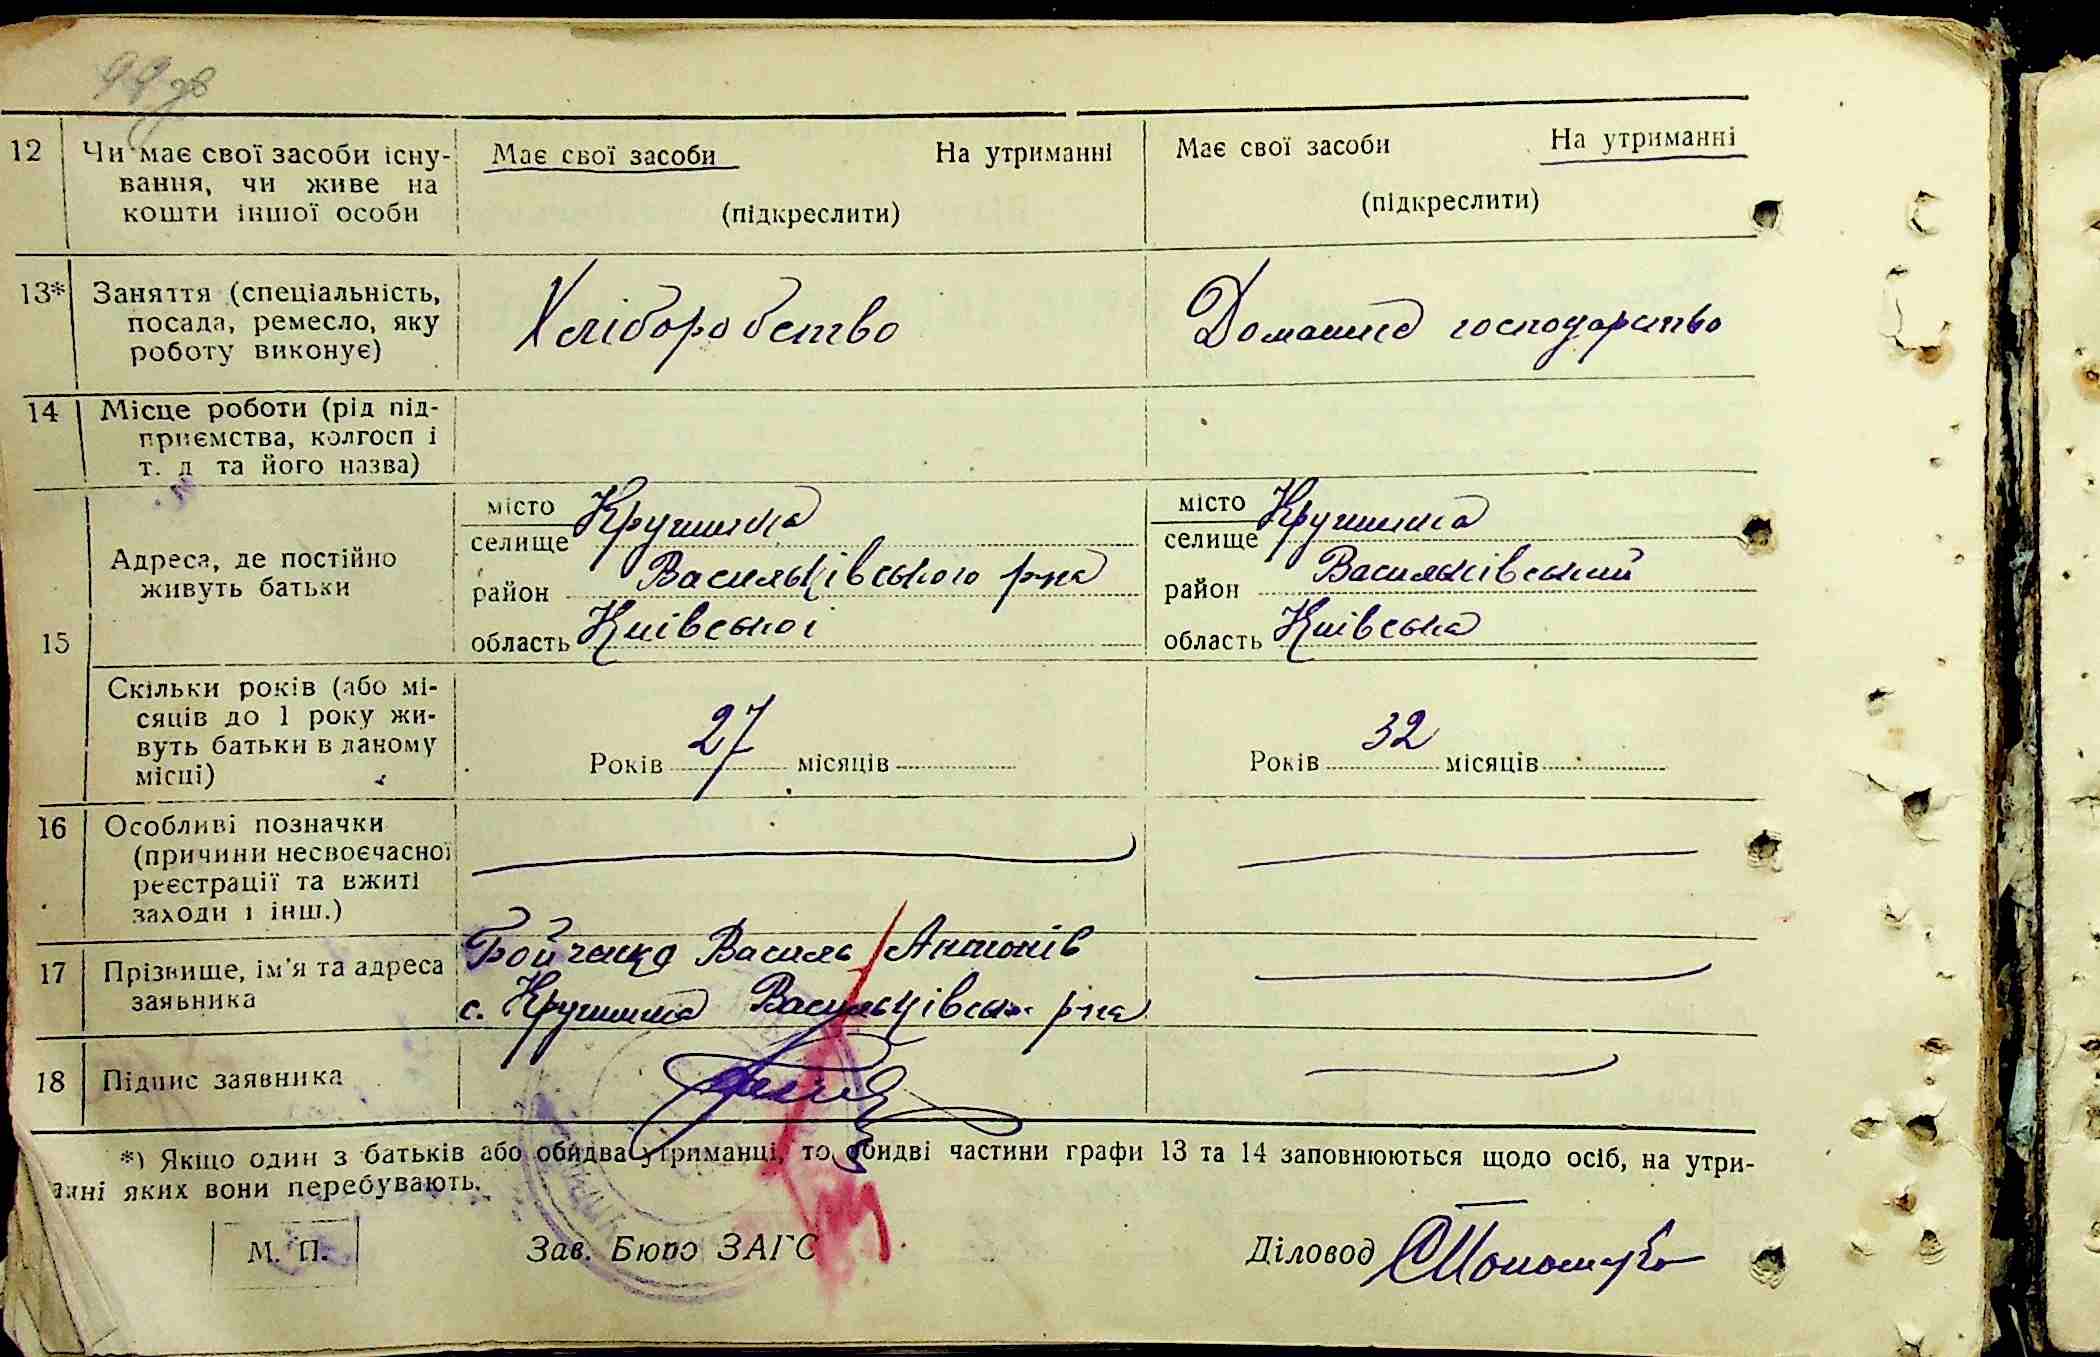 99 зв
12 Чи має свої засоби існу- Має свої засоби На утриманні Має свої засоби На утриманні
вання, чи живе на
кошти іншої особи (підкреслити) (підкреслити)
13* Заняття (спеціальність,
посада, ремесло, яку Хліборобство Домашнє господарство
роботу виконує)
14 Місце роботи (рід під-
приємства, колгосп і
т. д та його назва)
15 Адреса, де постійно
живуть батьки
місто Крушинка місто Крушинка
селище селище
район Васильківського р-на район Васильківський
область Київської область Київська
Скільки років (або мі-
сяців до 1 року жи-
вуть батьки в даному
місці)
Років 27 місяців Років 32 місяців
16 Особливі позначки
(причини несвоєчасної
реєстрації та вжиті
заходи і інш.)
17 Прізвище, ім'я та адреса Бойченко Василь Антонів
заявника с. Крушинка Васильківськ р-на
18 Підпис заявника
*) Якщо один з батьків або обидва утриманці, то обидві частини графи 13 та 14 заповнюються щодо осіб, на утри-
анні яких вони перебувають.
М. П. Зав. Бюро ЗАГС Діловод